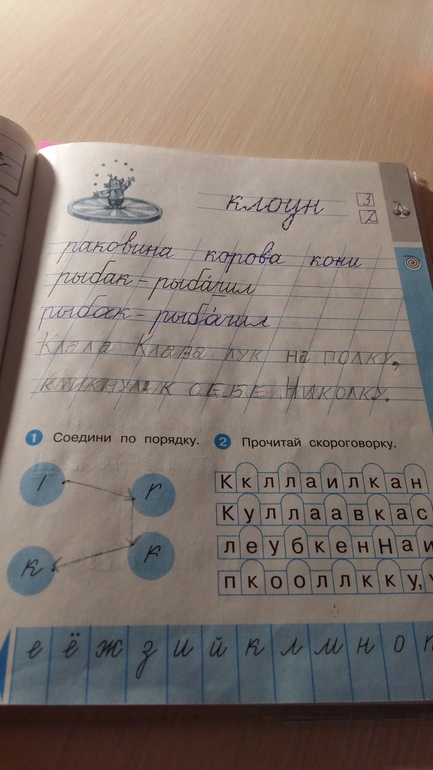 клоун 3
2
раковина корова кони
рыбак – рыбачил
рыбак – рыбачил
Клала Клава лук на полку,
кликнула к себе Николку.
1 Соедини по порядку. 2 Прочитай скороговорку.
Ккллаилкан
Куллаавкас
леубкенНаи
пкооллкку,
е ё ж з и й к л м н о п